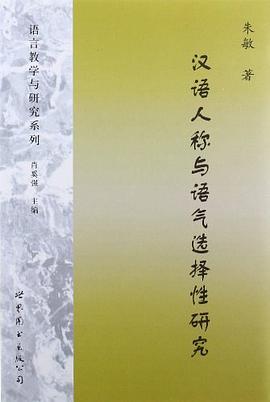 朱敏 著
汉语人称与语气选择性研究
语言教学与研究系列
肖奚强 主编
世界图书出版公司